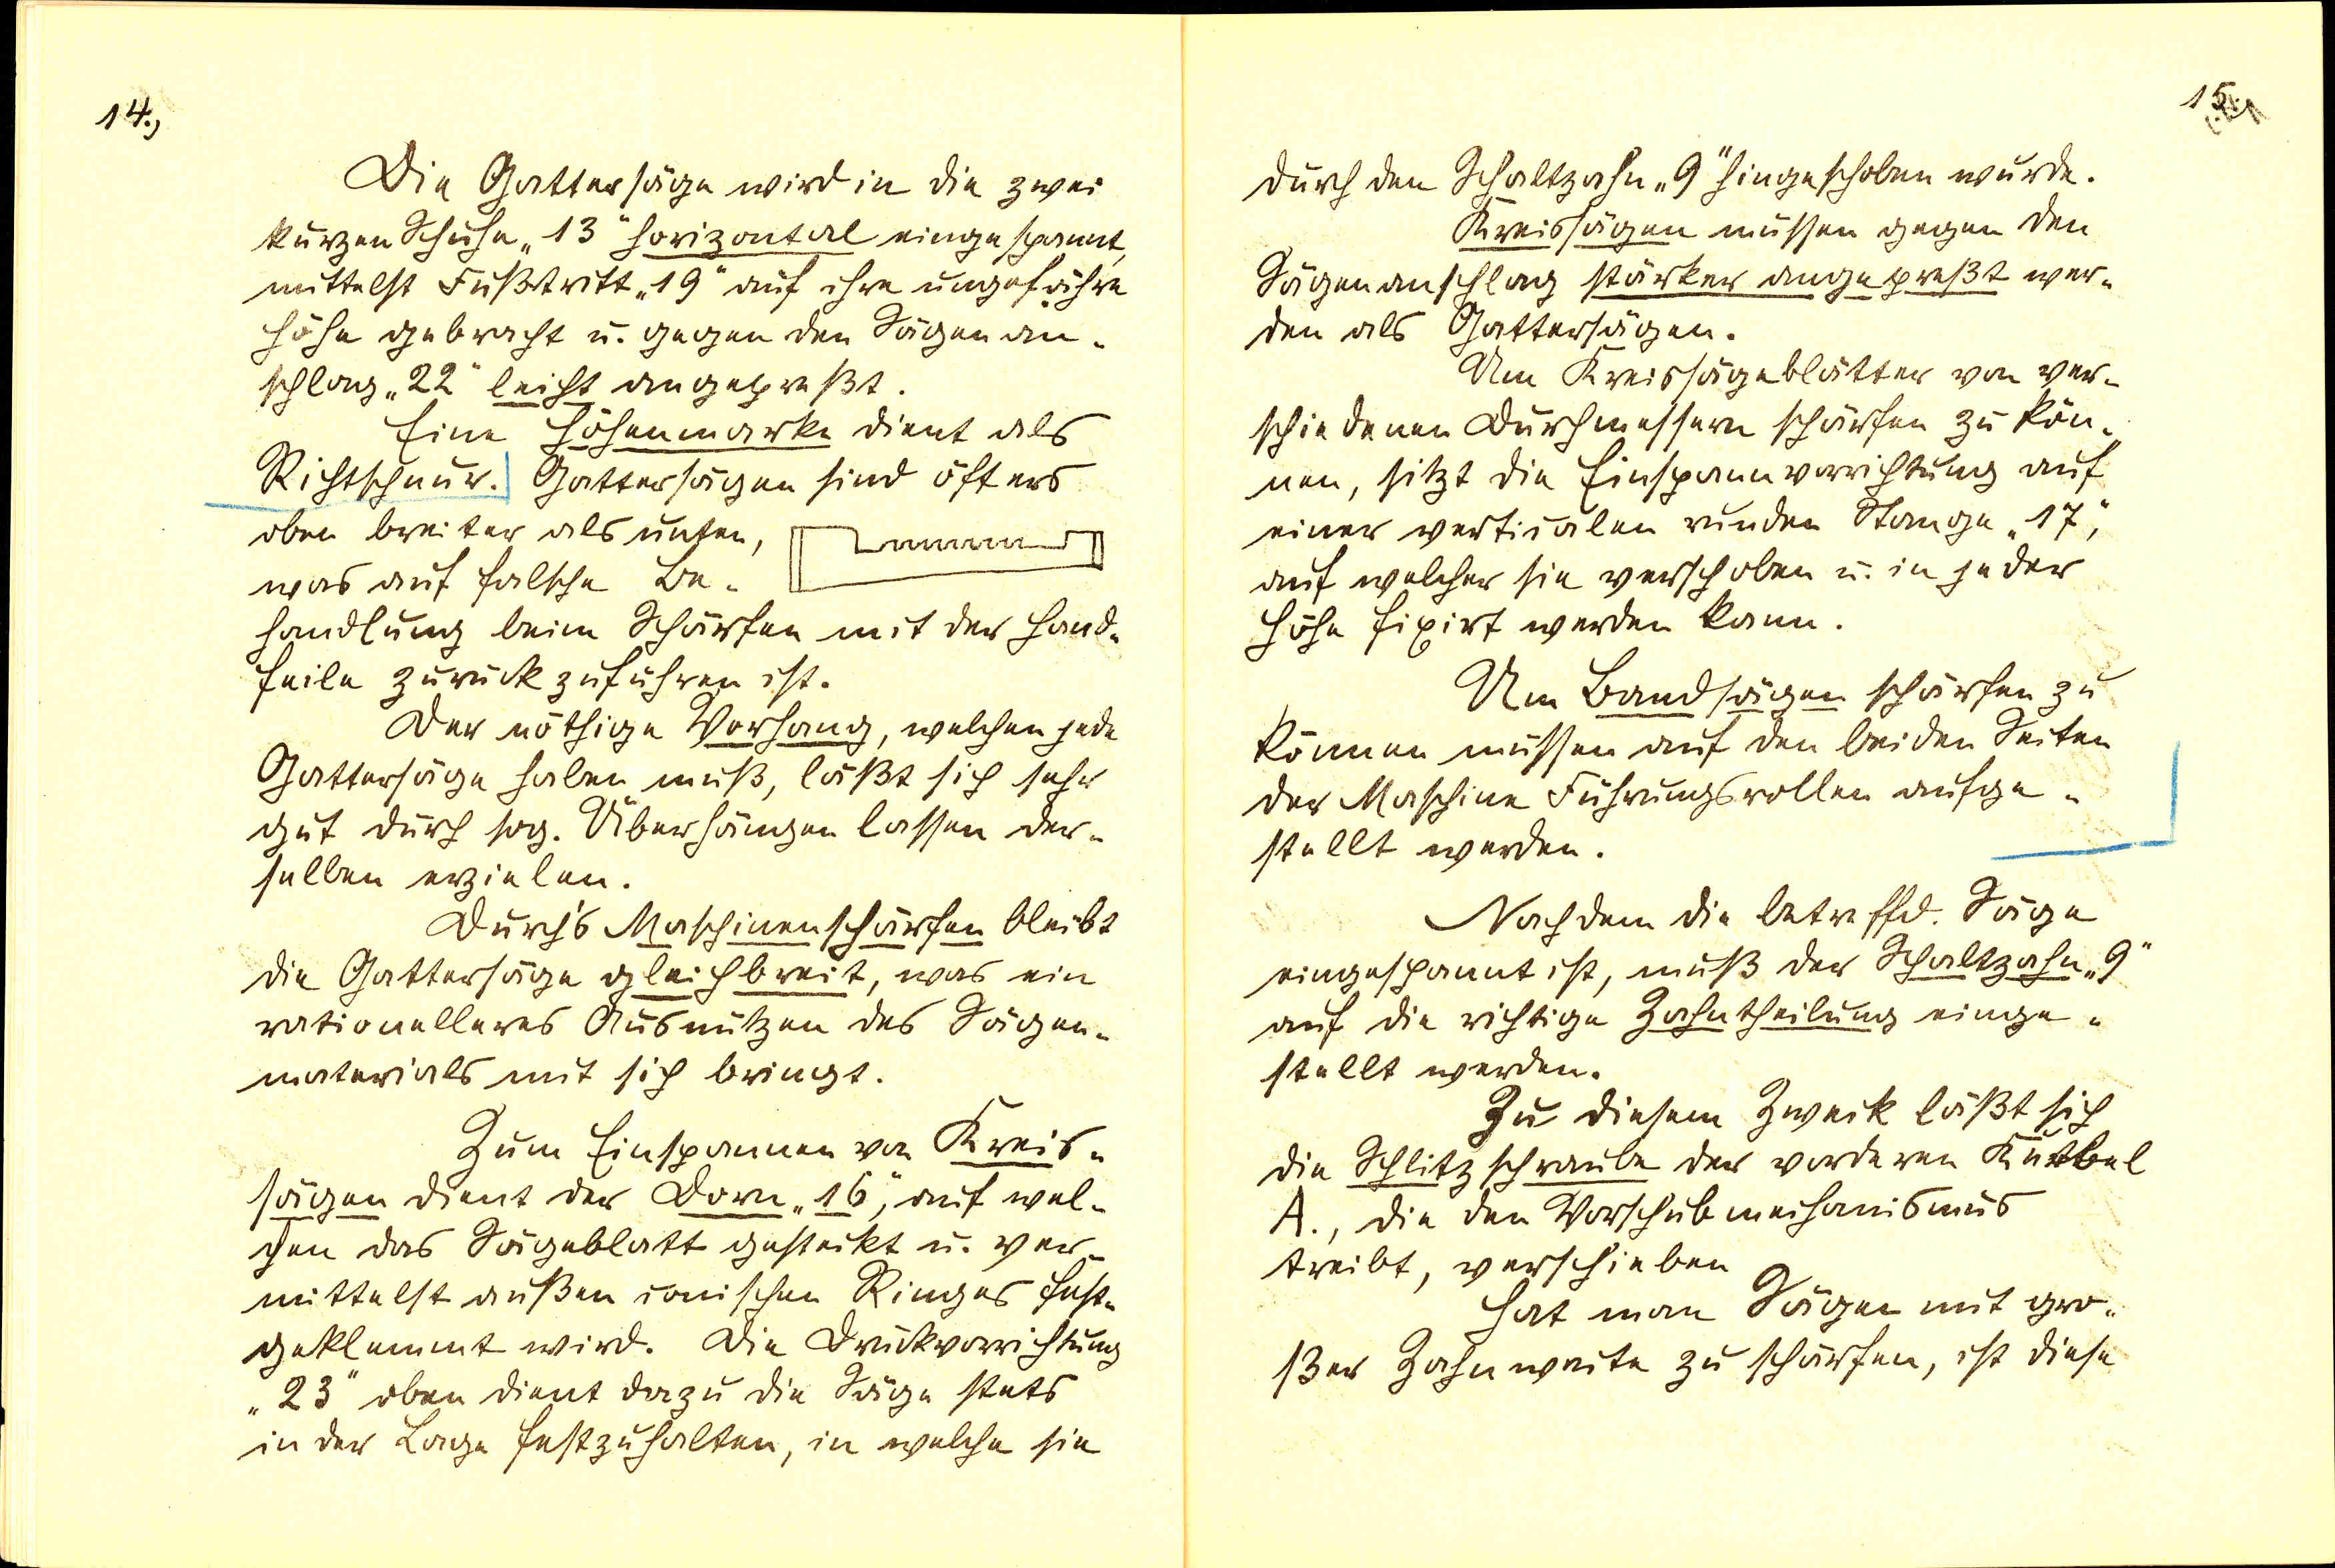 14.,
Die Gattersäge wird in die zwei
kurzen Schuhe „13“ horizontal eingespannt,
mittelst Fußtritt „19“ auf ihre ungefähre
Höhe gebracht u. gegen den Sägenan-
schlag „22“ leicht angepreßt.
Eine Höhenmarke dient als
Richtschnur. Gattersägen sind öfters
oben breiter als unten,
was auf falsche Be-
handlung beim Schärfen mit der Hand-
feile zurückzuführen ist.
Der nöthige Vorhang, welchen jede
Gattersäge haben muß, läßt sich sehr
gut durch sog. Überhängen lassen der-
selben erzielen.
Durch's Maschinenschärfen bleibt
die Gattersäge gleichbreit, was ein
rationelleres Ausnützen des Sägen-
materials mit sich bringt.
Zum Einspannen von Kreis-
sägen dient der Dorn „16“, auf wel-
chen das Sägeblatt gesteckt u. ver-
mittelst außen conischen Ringes fest-
geklemmt wird. Die Druckvorrichtung
„23“ oben dient dazu die Säge stets
in der Lage festzuhalten, in welche sie
15.,
durch den Schaltzahn „9“ hingeschoben wurde.
Kreissägen müssen gegen den
Sägenanschlag stärker angepreßt wer-
den als Gattersägen.
Um Kreissägeblätter von ver-
schiedenen Durchmessern schärfen zu kön-
nen, sitzt die Einspannvorrichtung auf
einer verticalen runden Stange „17“,
auf welcher sie verschoben u. in jeder
Höhe fixirt werden kann.
Um Bandsägen schärfen zu
können müssen auf den beiden Seiten
der Maschine Führungsrollen aufge-
stellt werden.
Nachdem die betreffd. Säge
eingespannt ist, muß der Schaltzahn „9“
auf die richtige Zahntheilung einge-
stellt werden.
Zu diesem Zweck läßt sich
die Schlitzschraube der vorderen Kurbel
A., die den Vorschubmechanismus
treibt, verschieben
Hat man Sägen mit gro-
ßer Zahnweite zu schärfen, ist diese